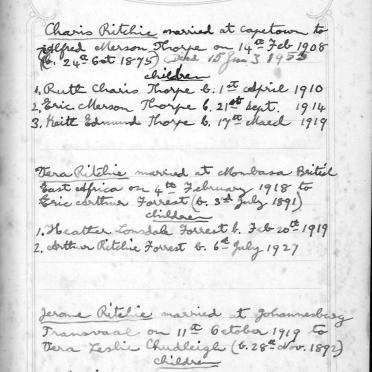 Charis Ritchie married at Capetown to
Alfred Merson Thorpe on 14th Feb 1908
(b. 24th Oct 1875) Died 15 Jan 3 1955
children
1. Ruth Charis Thorpe b. 1st April 1910
2. Eric Merson Thorpe b. 21st Sept. 1914
3. Keith Edmund Thorpe b. 17th March 1919
Vera Ritchie married at Mombasa British
East Africa on 4th February 1918 to
Eric Arthur Forrest (b. 3rd July 1891)
children
1. Heather Lonsdale Forrest b. Feb 20th 1919
2. Arthur Ritchie Forrest b. 6th July 1927
Jerome Ritchie married at Johannesburg
Transvaal on 11th October 1919 to
Vera Leslie Chudleigh (b. 28th Nov. 1892)
children